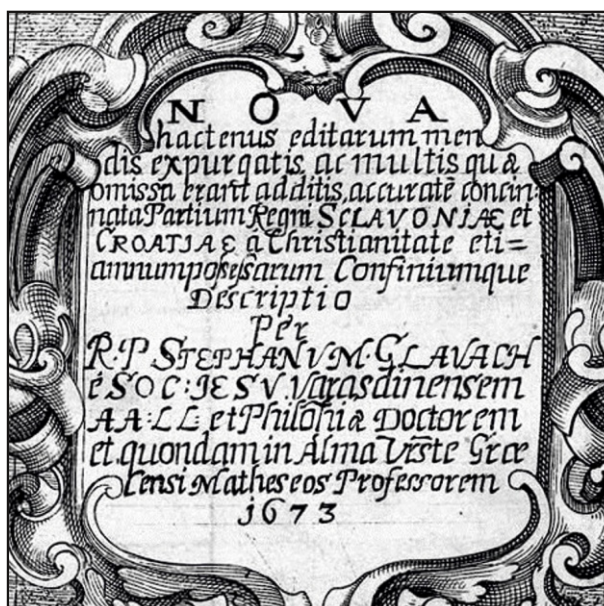 NOVA
hactenus editarum men
dis expurgatis, ac multis quæ
omissa erant additis, accuratè concin
nata Partium Regni SCLAVONIÆ et
CROATIAE à Christianitate eti=
amnum possessarum Confiniumque
Descriptio
Per
R.P STEPHANVM. GLAVACH
è SOC: IESV. Varasdinensem
AA.LL et Philosophiæ Doctorem
et quondam in Alma Vrste Græ
censi Matheseos Professorem
1673